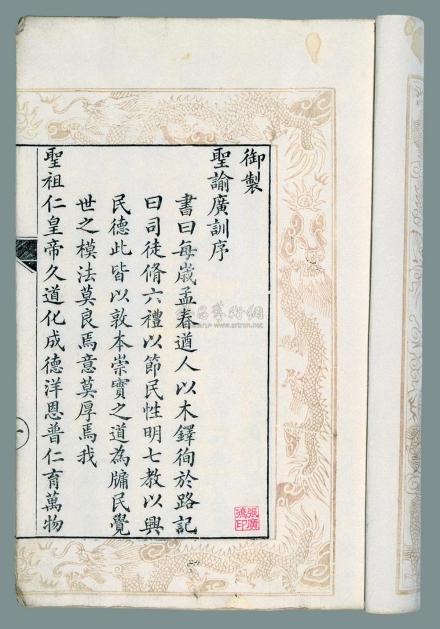 御製
聖諭廣訓序
書曰每歲孟春遒人以木鐸徇於路記
曰司徒脩六禮以節民性明七教以興
民德此皆以敦本崇實之道為牖民覺
世之模法莫良焉意莫厚焉我
聖祖仁皇帝久道化成德洋恩普仁育萬物
一
www.artron.net